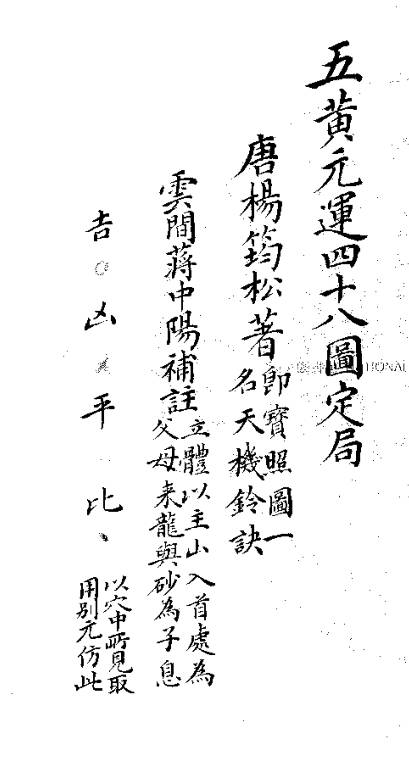 五黃元運四十八圖定局
唐楊筠松著即寶照圖一名天機鈴訣
雲間蔣中陽補註立體以主山入首處為父母来龍與砂為子息
吉○凶×平 比、以穴中所見取用别元仿此